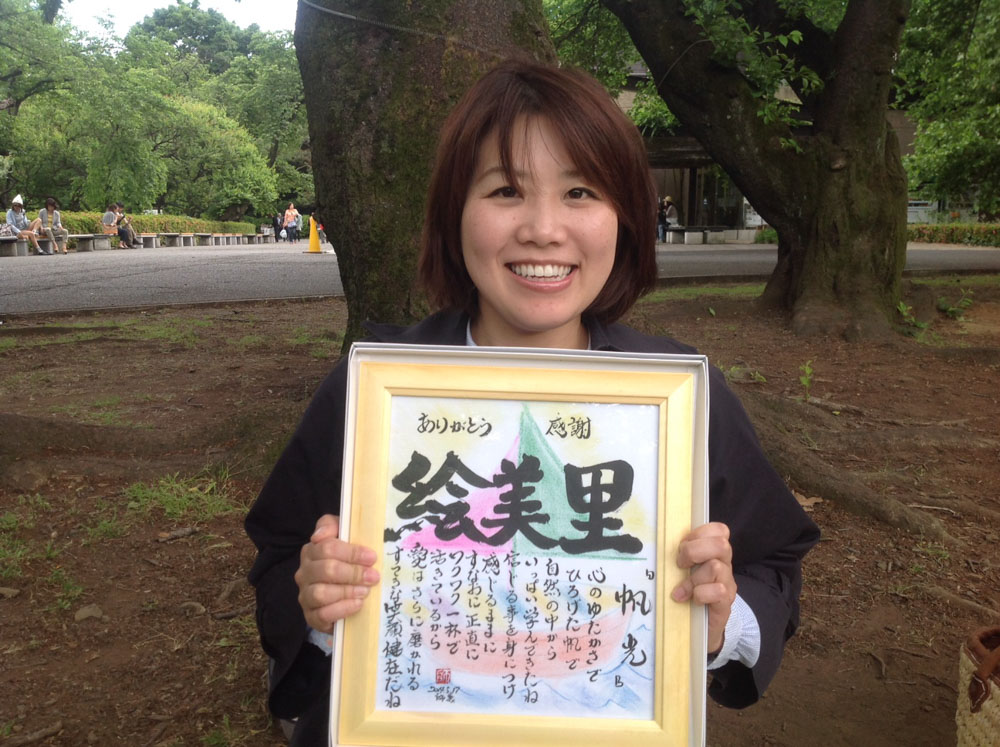 ありがとう 感謝
絵美里
「帆光」
心のゆたかさで
ひろげた帆で
自然の中から
いっぱい学んできたね
信じる事を身につけ
感じるままに
すなおに正直に
ワクワク一杯で
活きているから
愛はさらに磨かれる
すてきな笑顔健在だね